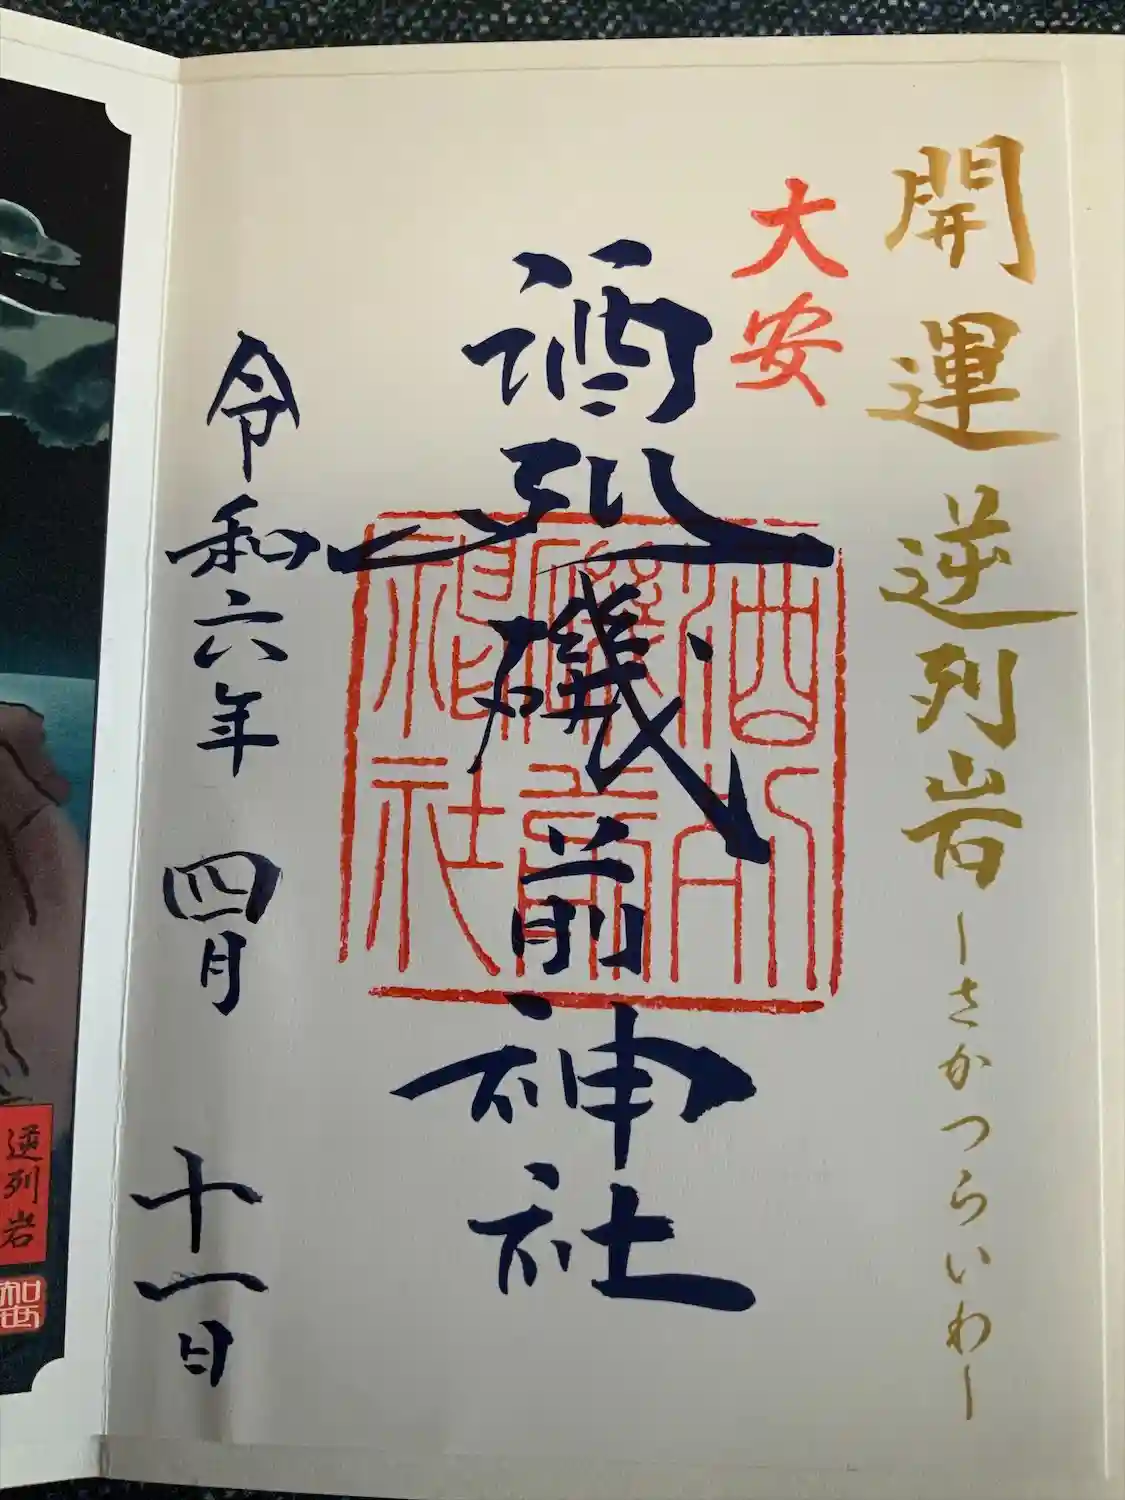 開運 逆列岩 ーさかつらいわー
大安
酒列磯前神社
酒列
磯前
神社
令和六年 四月 十一日
逆列岩